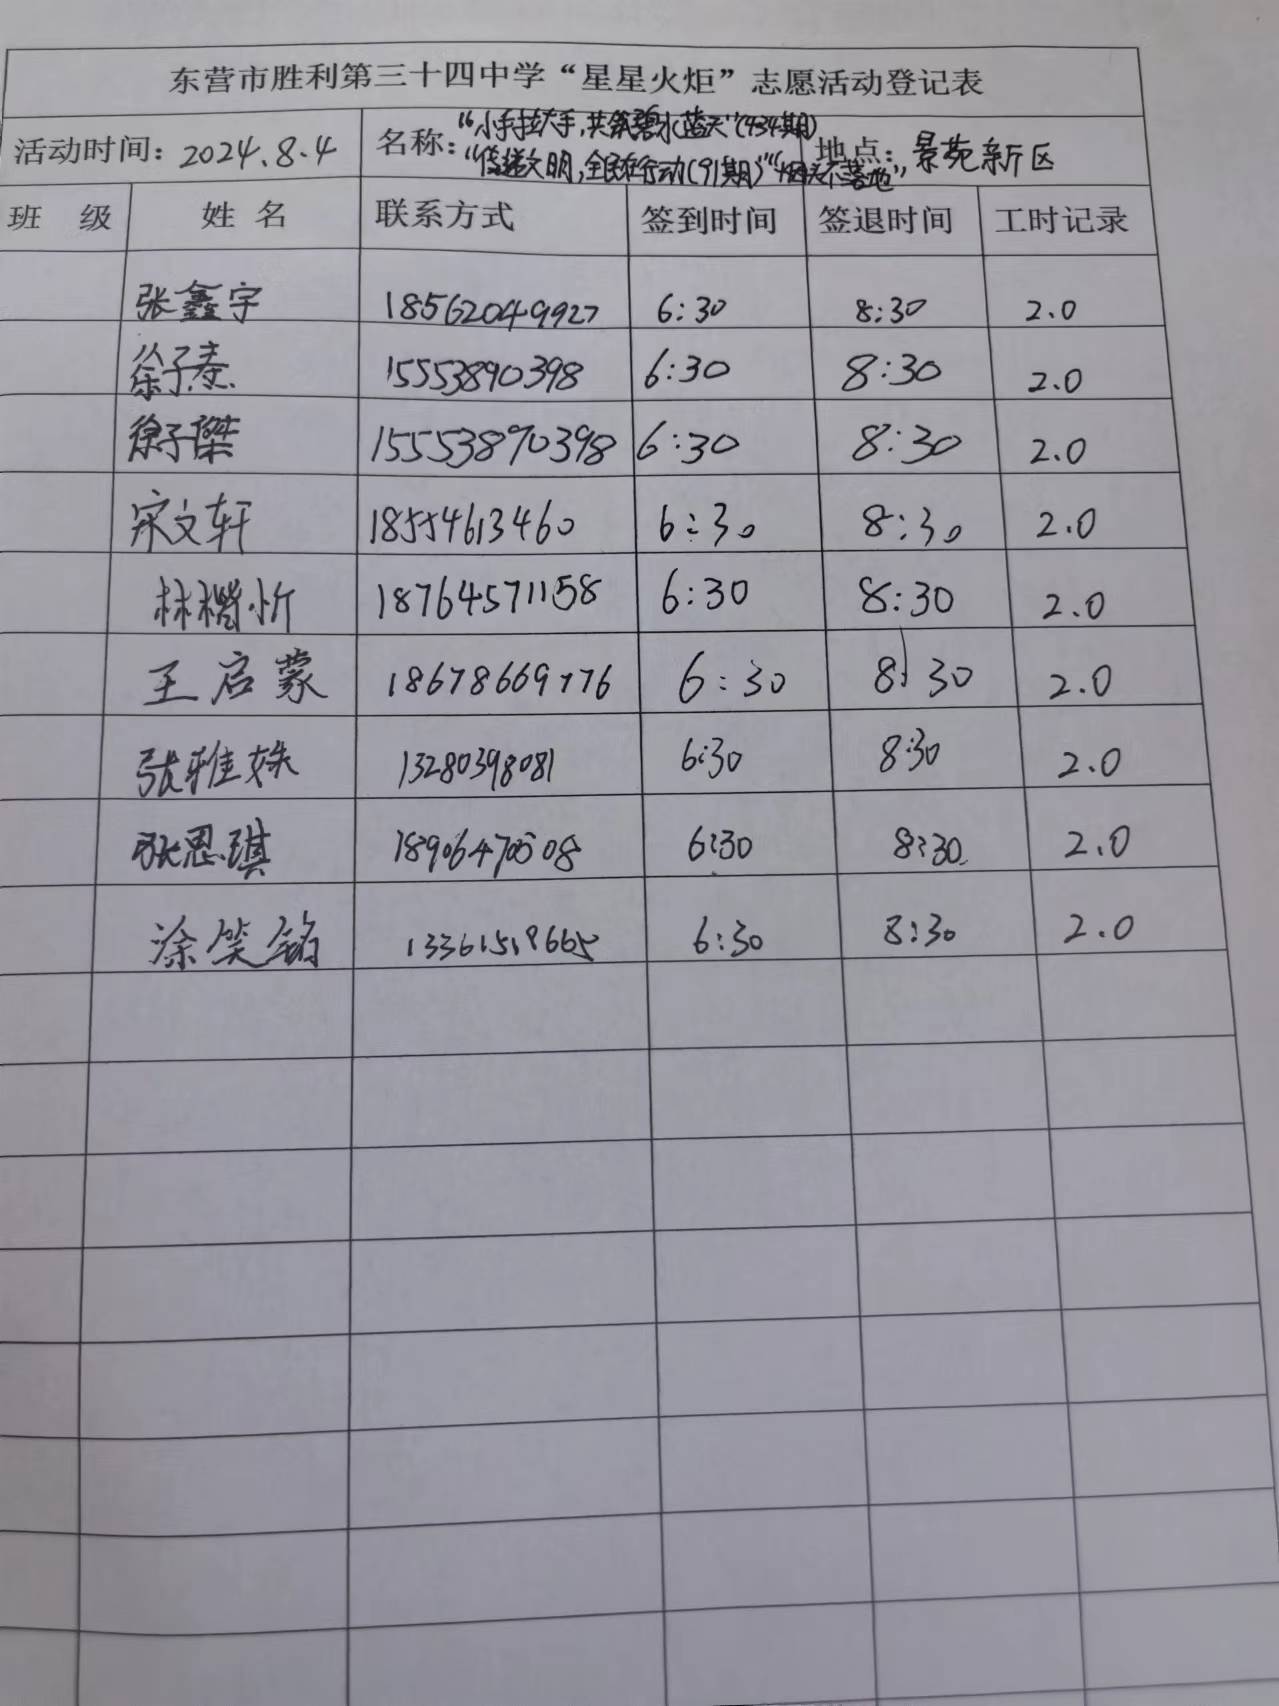 东营市胜利第三十四中学“星星火炬”志愿活动登记表
活动时间：2024.8.4 名称：“小手拉大手，共筑碧水蓝天”(434期) “传递文明，全民在行动(91期)”“烟头不落地” 地点：景苑新区
班 级 姓 名 联系方式 签到时间 签退时间 工时记录
张鑫宇 18562049927 6:30 8:30 2.0
徐子 15553890398 6:30 8:30 2.0
徐子傑 15553890398 6:30 8:30 2.0
宋文轩 18554613460 6:30 8:30 2.0
林楷忻 18764571158 6:30 8:30 2.0
王启蒙 18678669776 6:30 8:30 2.0
张雅姝 13280398081 6:30 8:30 2.0
张思琪 18906470508 6:30 8:30 2.0
涂笑铭 13361519665 6:30 8:30 2.0